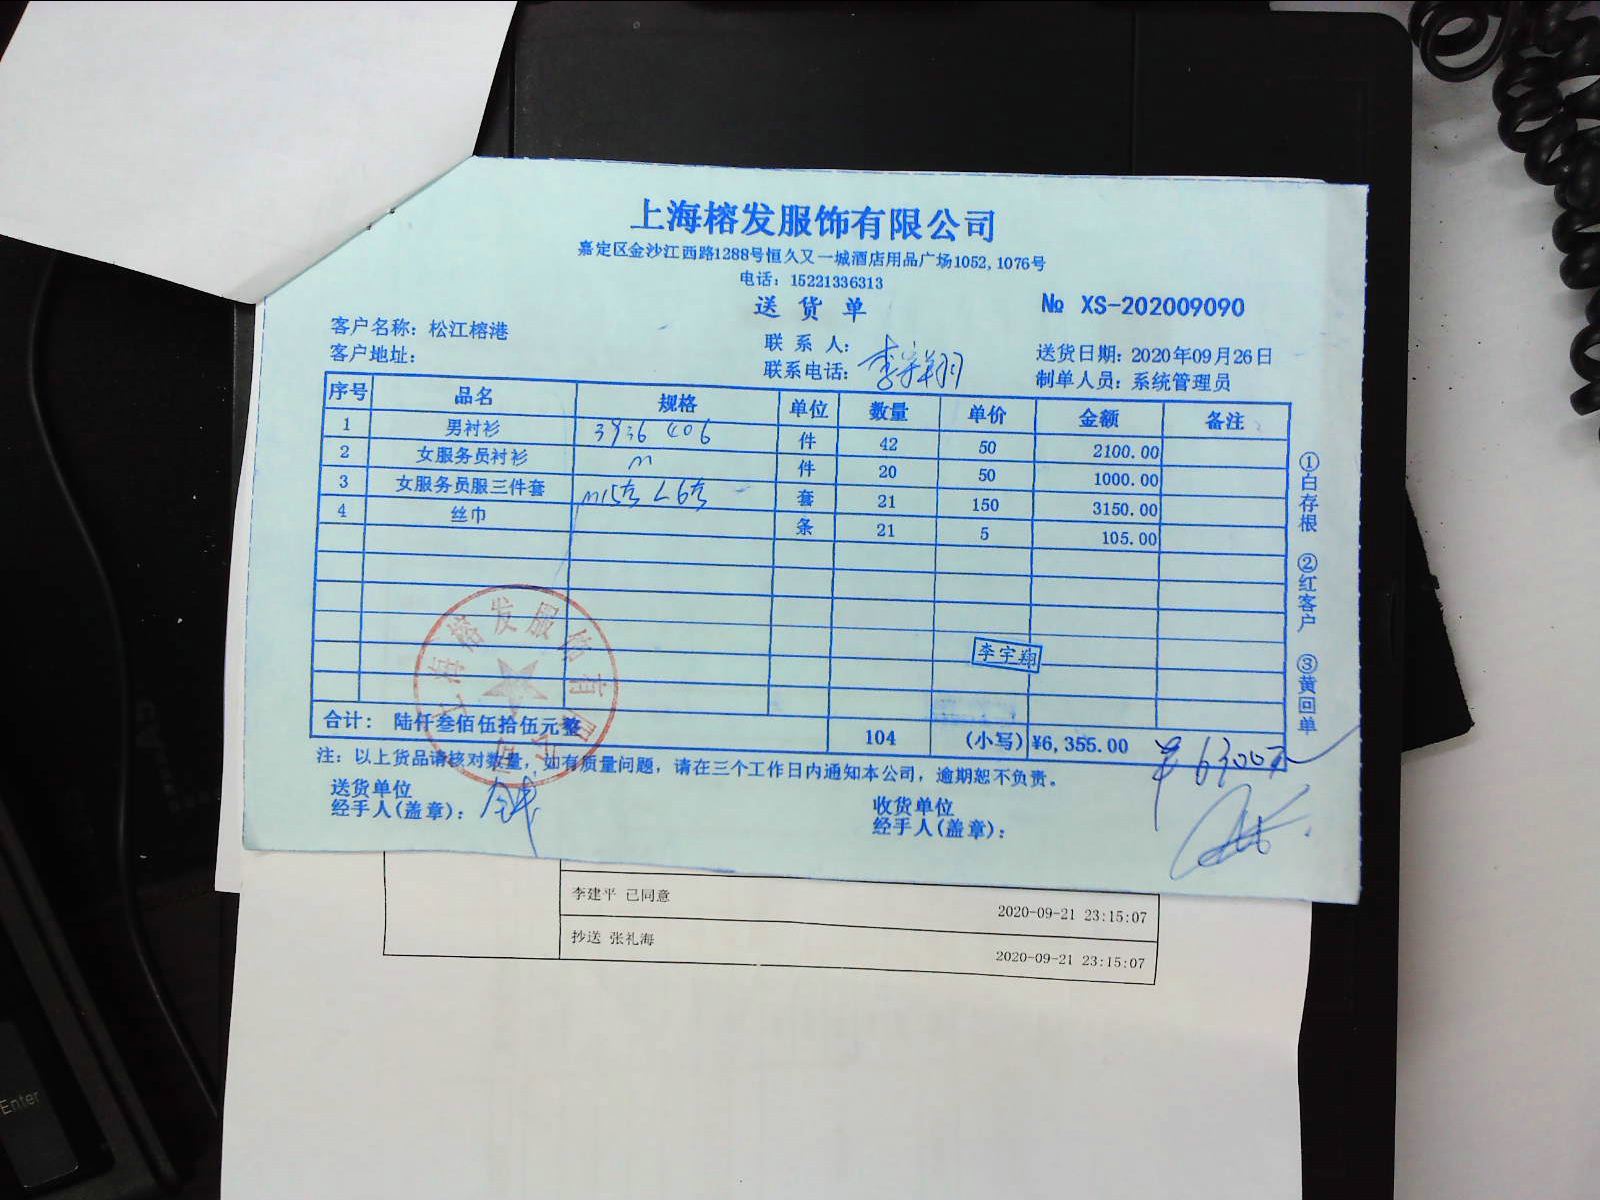 上海榕发服饰有限公司
嘉定区金沙江西路1288号恒久又一城酒店用品广场1052,1076号
电话：15221336313
送货单
№ XS-202009090
客户名称：松江榕港
联系人：
送货日期：2020年09月26日
客户地址：
联系电话：李宇翔
制单人员：系统管理员
序号 品名 规格 单位 数量 单价 金额 备注
1 男衬衫 件 42 50 2100.00
2 女服务员衬衫 m 件 20 50 1000.00
3 女服务员服三件套 m15套 L6套 套 21 150 3150.00
4 丝巾 条 21 5 105.00
李宇翔
合计：陆仟叁佰伍拾伍元整 104 (小写) ¥6,355.00
¥6300元
注：以上货品请核对数量，如有质量问题，请在三个工作日内通知本公司，逾期恕不负责。
送货单位
经手人(盖章)：
收货单位
经手人(盖章)：
①白存根 ②红客户 ③黄回单
上海榕发服饰有限公司
李建平 已同意
2020-09-21 23:15:07
抄送 张礼海
2020-09-21 23:15:07
Enter